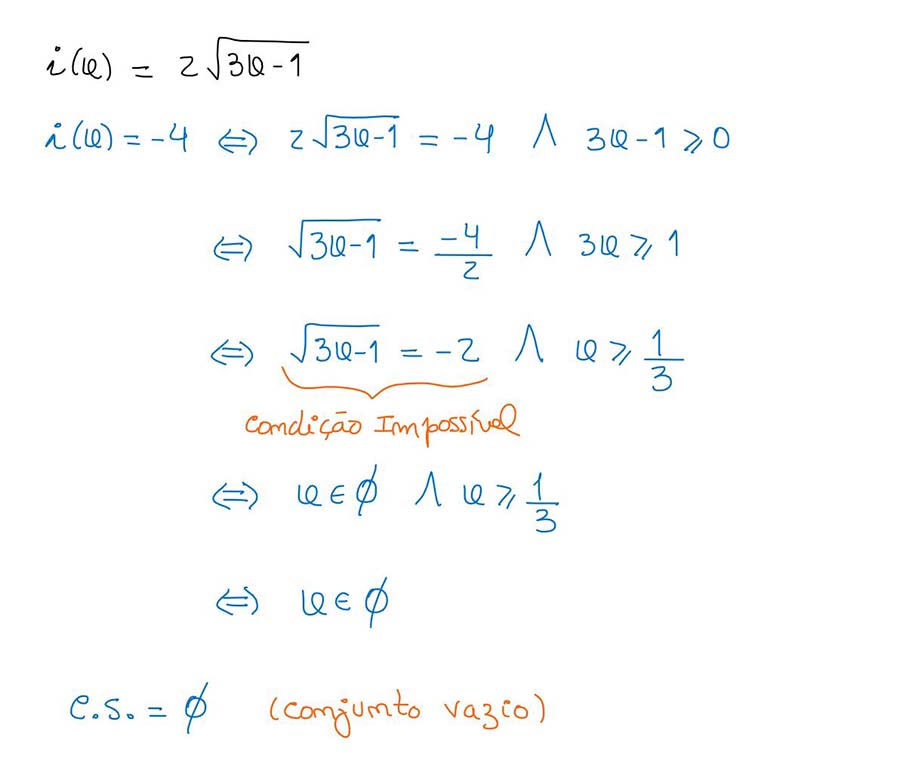 i(x) = 2√(3x-1)
i(x) = -4 ⇔ 2√(3x-1) = -4 ∧ 3x-1 ⩾ 0
⇔ √(3x-1) = -4/2 ∧ 3x ⩾ 1
⇔ √(3x-1) = -2 ∧ x ⩾ 1/3
Condição Impossível
⇔ x ∈ ∅ ∧ x ⩾ 1/3
⇔ x ∈ ∅
C.S. = ∅ (conjunto vazio)